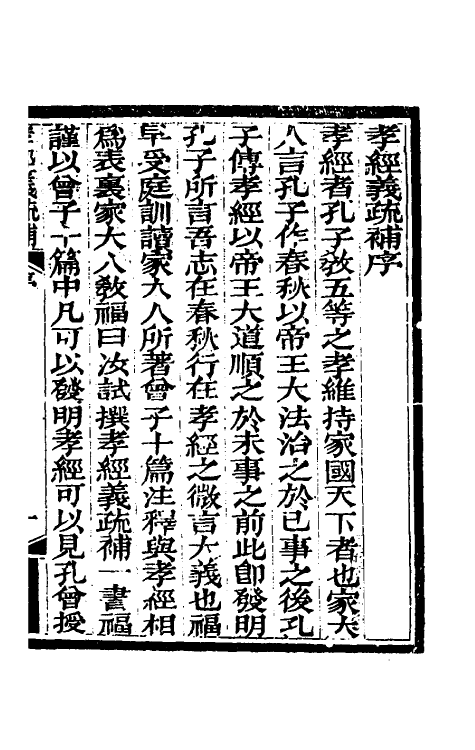 孝經義疏補序
孝經者孔子敎五等之孝維持家國天下者也家大
人言孔子作春秋以帝王大法治之於已事之後孔
子傳孝經以帝王大道順之於未事之前此卽發明
孔子所言吾志在春秋行在孝經之微言大義也福
早受庭訓讀家大人所著曾子十篇注釋與孝經相
爲表裏家大人敎福曰汝試撰孝經義疏補一書福
謹以曾子十篇中凡可以發明孝經可以見孔曾授
孝經義疏補 序 一